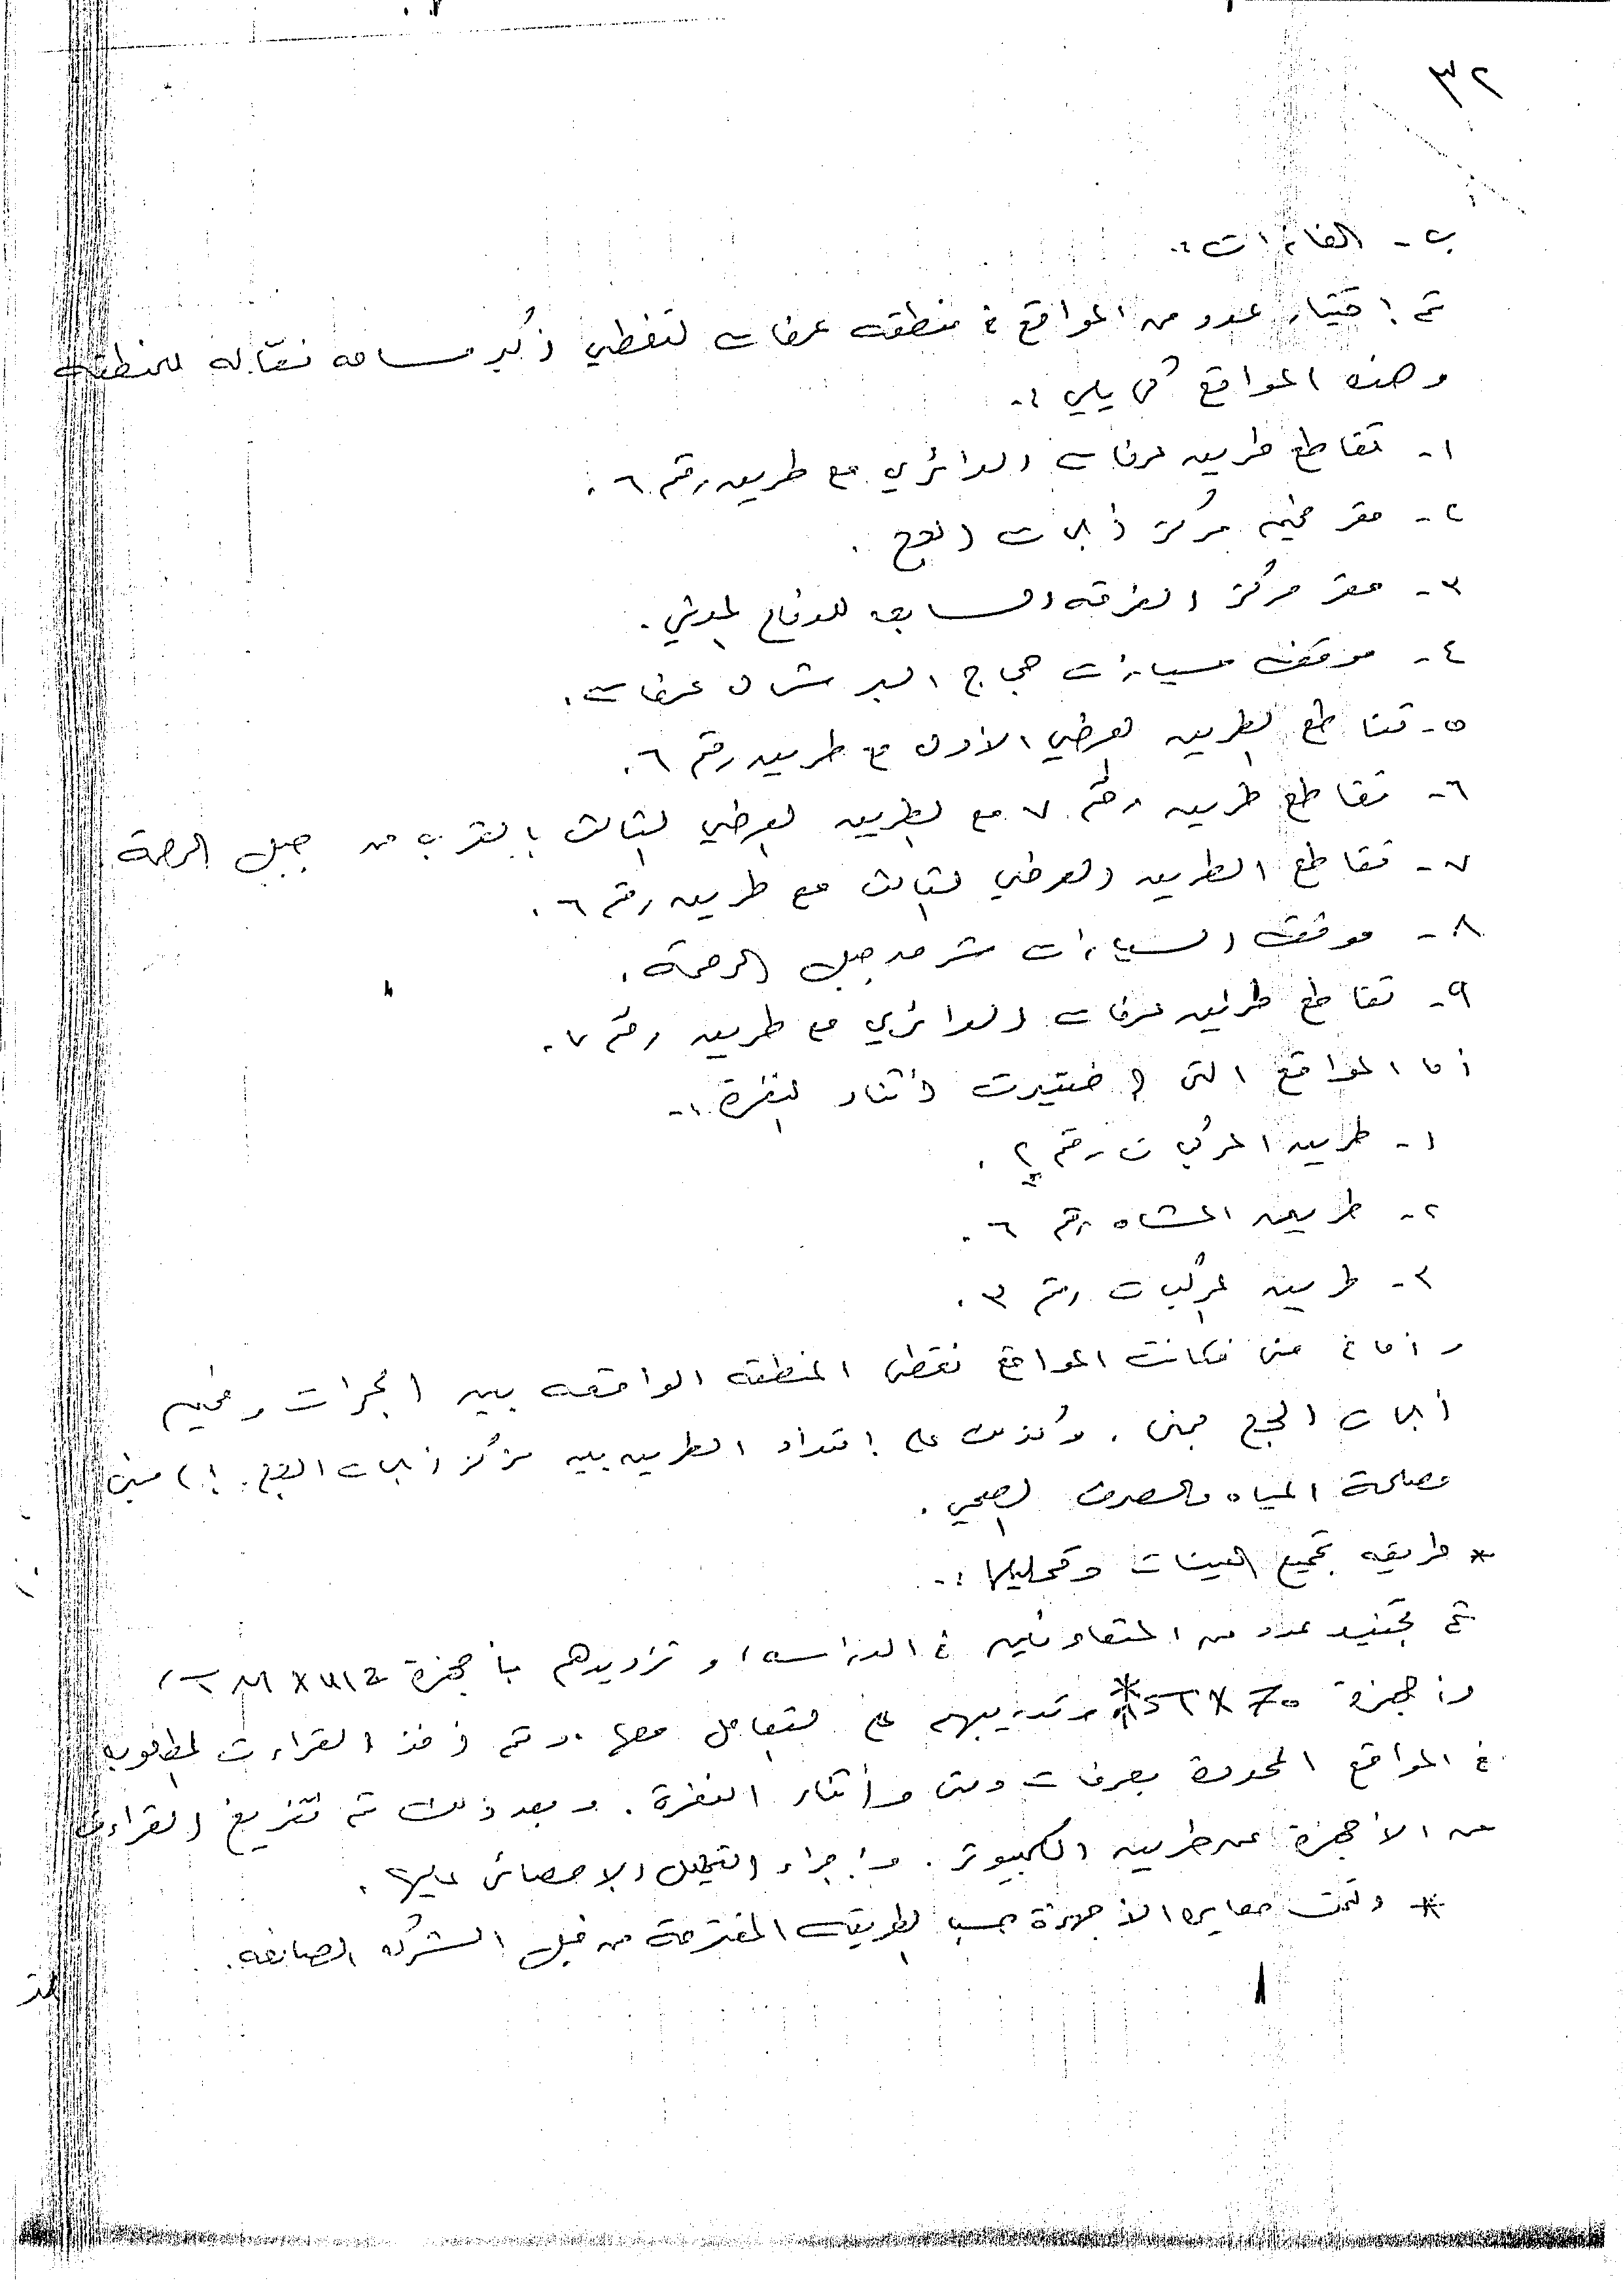 ٣٢
ب - الغازات :-
تم اختيار عدد من المواقع في منطقه عرفات لتغطي أكبر مساحه فعّاله للمنطقه
وهذه المواقع كما يلي :-
١- تقاطع طريق عرفات الدائري مع طريق رقم ٦ .
٢- مقر مخيم مركز أبحاث الحج .
٣- مقر مركز الغرفه السابق للدفاع المدني .
٤- موقف سيارات حجاج البر شمال عرفات .
٥- تقاطع الطريق العرضي الأول مع طريق رقم ٦ .
٦- تقاطع طريق رقم ٧ مع الطريق العرضي الثالث بالقرب من جبل الرحمة .
٧- تقاطع الطريق العرضي الثالث مع طريق رقم ٦ .
٨- موقف السيارات شرق جبل الرحمة .
٩- تقاطع طريق عرفات الدائري مع طريق رقم ٧ .
أما المواقع التى اختيرت أثناء النفرة :-
١- طريق المركبات رقم ٢ .
٢- طريق المشاه رقم ٦ .
٣- طريق المركبات رقم ٣ .
وأما في منى فكانت المواقع تغطى المنطقه الواقعه بين الجمرات ومخيم
أبحاث الحج بمنى . وكذلك على إمتداد الطريق بين مركز أبحاث الحج إلى مبنى
مصلحة المياه والصرف الصحي .
* طريقه تجميع العينات وتحليلها :-
تم تجنيد عدد من المتعاونين في الدراسه ، وتزويدهم بأجهزة TMX412 ،
وأجهزة STX70 * وتدريبهم على التعامل معها . وتم أخذ القراءات المطلوبه
في المواقع المحددة بعرفات ومنى وأثناء النفرة . وبعد ذلك تم تفريغ القراءات
من الأجهزة عن طريق الكمبيوتر . وإجراء التحليل الإحصائى عليها .
* وتمت معايره الأجهزة حسب الطريقه المقترحة من قبل الشركه الصانعه .